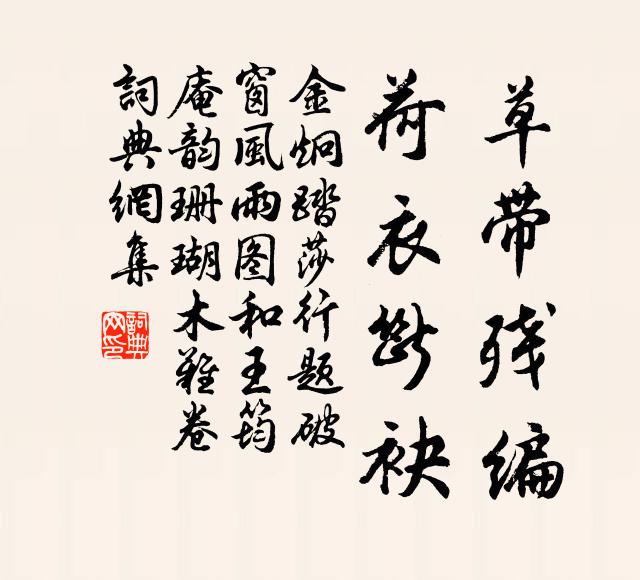 草带残编
荷衣断袂
金炯踏莎行题破
窗風雨图和王筠
庵韵珊瑚木难卷
詞典網集
詞典
网印